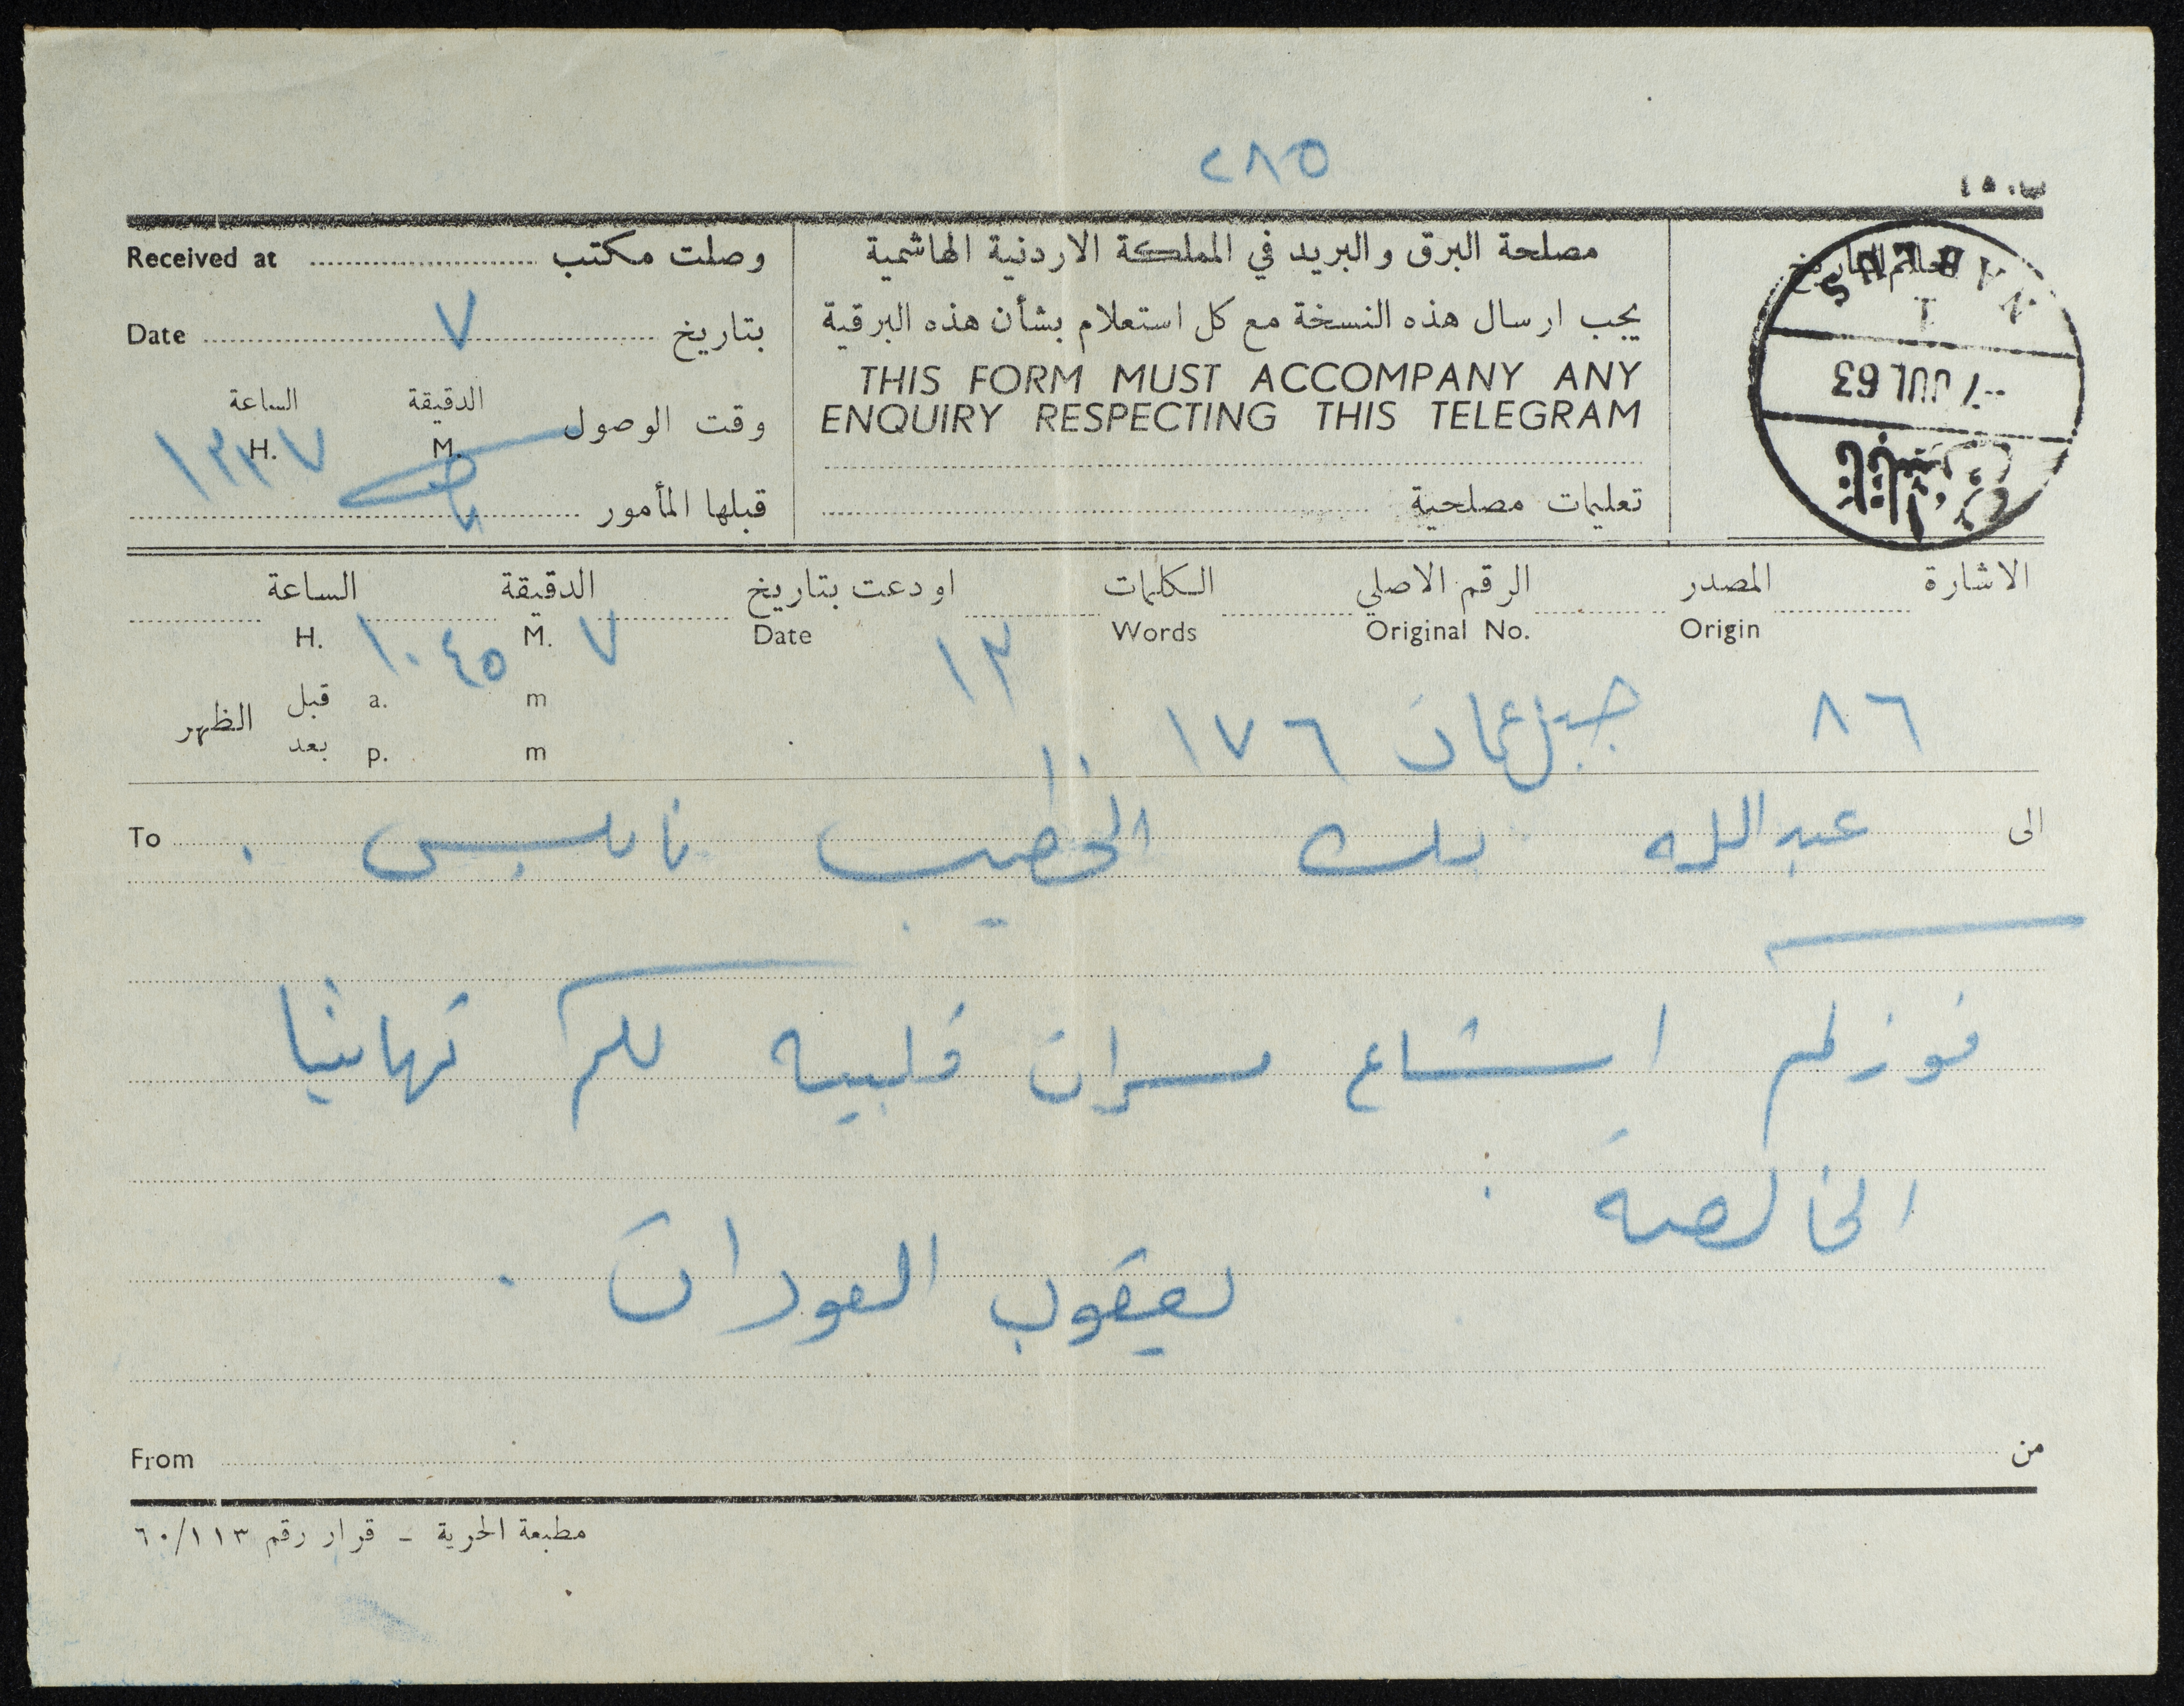 ٢٨٥
Received at وصلت مكتب
Date ٧ بتاريخ
الساعة الدقيقة
H. M. وقت الوصول
١٢٣٧
قبلها المأمور
مصلحة البرق والبريد في المملكة الاردنية الهاشمية
يجب ارسال هذه النسخة مع كل استعلام بشأن هذه البرقية
THIS FORM MUST ACCOMPANY ANY
ENQUIRY RESPECTING THIS TELEGRAM
تعليمات مصلحية
NABLUS
1
-7 JUL 63
نابلس
الاشارة المصدر الرقم الاصلي الكلمات اودعت بتاريخ الدقيقة الساعة
Origin Original No. Words Date M. H.
٨٦ جبل عمان ١٧٦ ١٣ ٧ ١٠٤٥
١٠
قبل a. m
الظهر
بعد p. m
الى عبدالله بك الخطيب نابلس . To
فوزكم اشاع مسرات قلبيه لكم تهانينا
الخالصة .
يعقوب العودات .
From من
مطبعة الحرية - قرار رقم ٦٠/١١٣